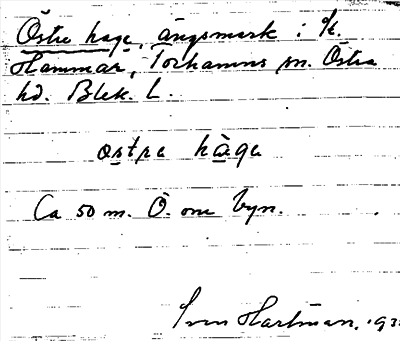 Östre hage, ängsmark i St.
Hammar, Torhamns sn. Östra
hd. Blek. l.
östre hàge
Ca 50 m. Ö. om byn.
Sven Hartman, 193